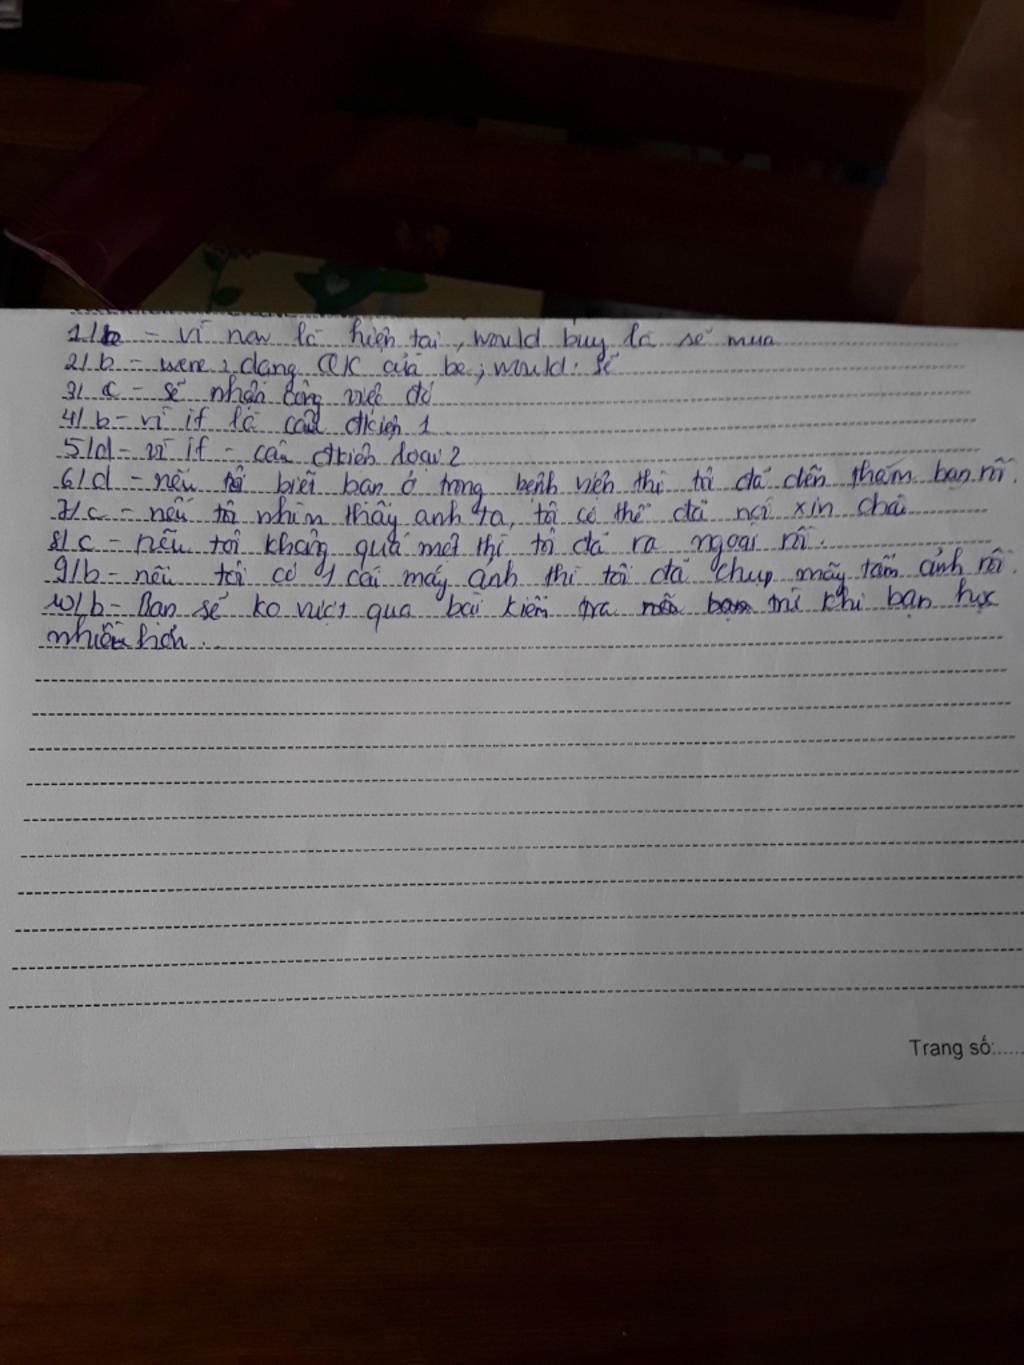 1/b - vì now là hiện tại, would buy là sẽ mua
2/b - were : dạng QK của be; would: sẽ
3/ c - sẽ nhận công việc đó
4/ b - vì if là câu đkiện 1
5/d - vì if - câu đkiện loại 2
6/d - nếu tôi biết bạn ở trong bệnh viện thì tôi đã đến thăm bạn rồi.
7/c - nếu tôi nhìn thấy anh ta, tôi có thể đã nói xin chào
8/ c - nếu tôi không quá mệt thì tôi đã ra ngoài rồi.
9/b - nếu tôi có 1 cái máy ảnh thì tôi đã chụp mấy tấm ảnh rồi.
10/b - Bạn sẽ ko vượt qua bài kiểm tra trừ khi bạn học
nhiều hơn.
Trang số:.....